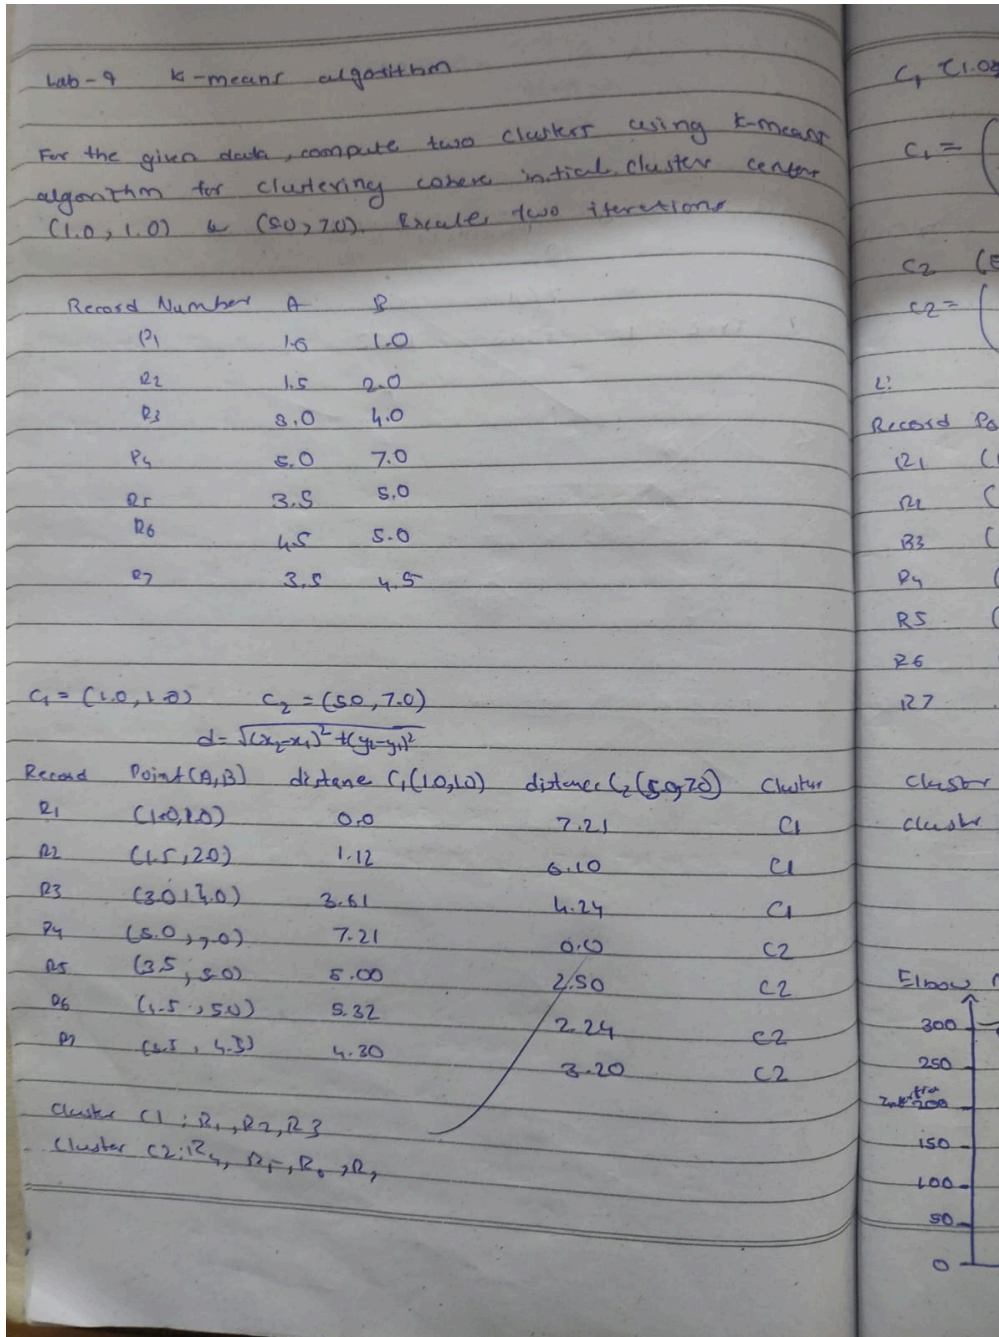 Lab-9 K-means algorithm
For the given data, compute two clusters using K-means
algorithm for clustering where initial cluster centers
(1.0, 1.0) & (5.0, 7.0). Execute two iterations
Record Number A B
R1 1.0 1.0
R2 1.5 2.0
R3 3.0 4.0
R4 5.0 7.0
R5 3.5 5.0
R6 4.5 5.0
R7 3.5 4.5
C1 = (1.0, 1.0) C2 = (5.0, 7.0)
d = √(x2-x1)² + (y2-y1)²
Record Point(A,B) distane C1(1.0,1.0) distance C2(5.0,7.0) Cluster
R1 (1.0,1.0) 0.0 7.21 C1
R2 (1.5, 2.0) 1.12 6.10 C1
R3 (3.0, 4.0) 3.61 4.24 C1
R4 (5.0, 7.0) 7.21 0.0 C2
R5 (3.5, 5.0) 5.00 2.50 C2
R6 (4.5, 5.0) 5.32 2.24 C2
R7 (3.5, 4.5) 4.30 3.20 C2
Cluster C1: R1, R2, R3
Cluster C2: R4, R5, R6, R7
C1 (1.0
C1 = (
C2 (
C2 = (
Record Po
R1 (
R2 (
R3 (
R4 (
R5 (
R6
R7
Cluster
Cluster
Elbow
300
250
200
150
100
50
0